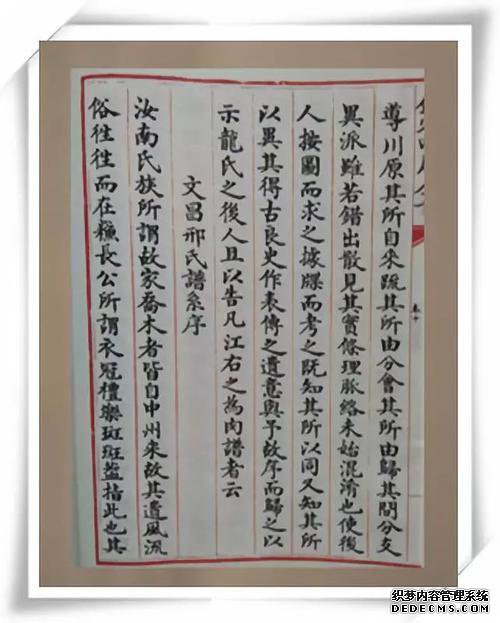 卷十
導川原其所自來疏其所由分會其所由歸其間分支
異派雖若錯出散見其實條理脈絡未始混淆也使後
人按圖而求之據牒而考之既知其所以同又知其所
以異其得古良史作表傳之遺意與予故序而歸之以
示龍氏之後人且以告凡江右之為肉譜者云
文昌邢氏譜系序
汝南氏族所謂故家喬木者皆自中州來故其遺風流
俗往往而在蘓長公所謂衣冠禮樂斑斑葢指此也其
织梦内容管理系统
DEDECMS.COM